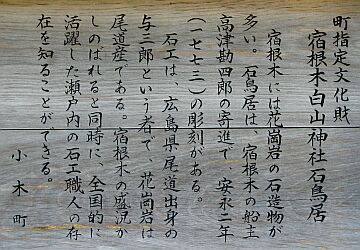 町指定文化財
宿根木白山神社石鳥居
宿根木には花崗岩の石造物が
多い。石鳥居は、宿根木の船主
高津勘四郎の寄進で、安永二年
(一七七三)の彫刻がある。
石工は、広島県尾道出身の
与三郎という者で、花崗岩は
尾道産である。宿根木の盛況が
しのばれると同時に、全国的に
活躍した瀬戸内の石工職人の存
在を知ることができる。
小木町